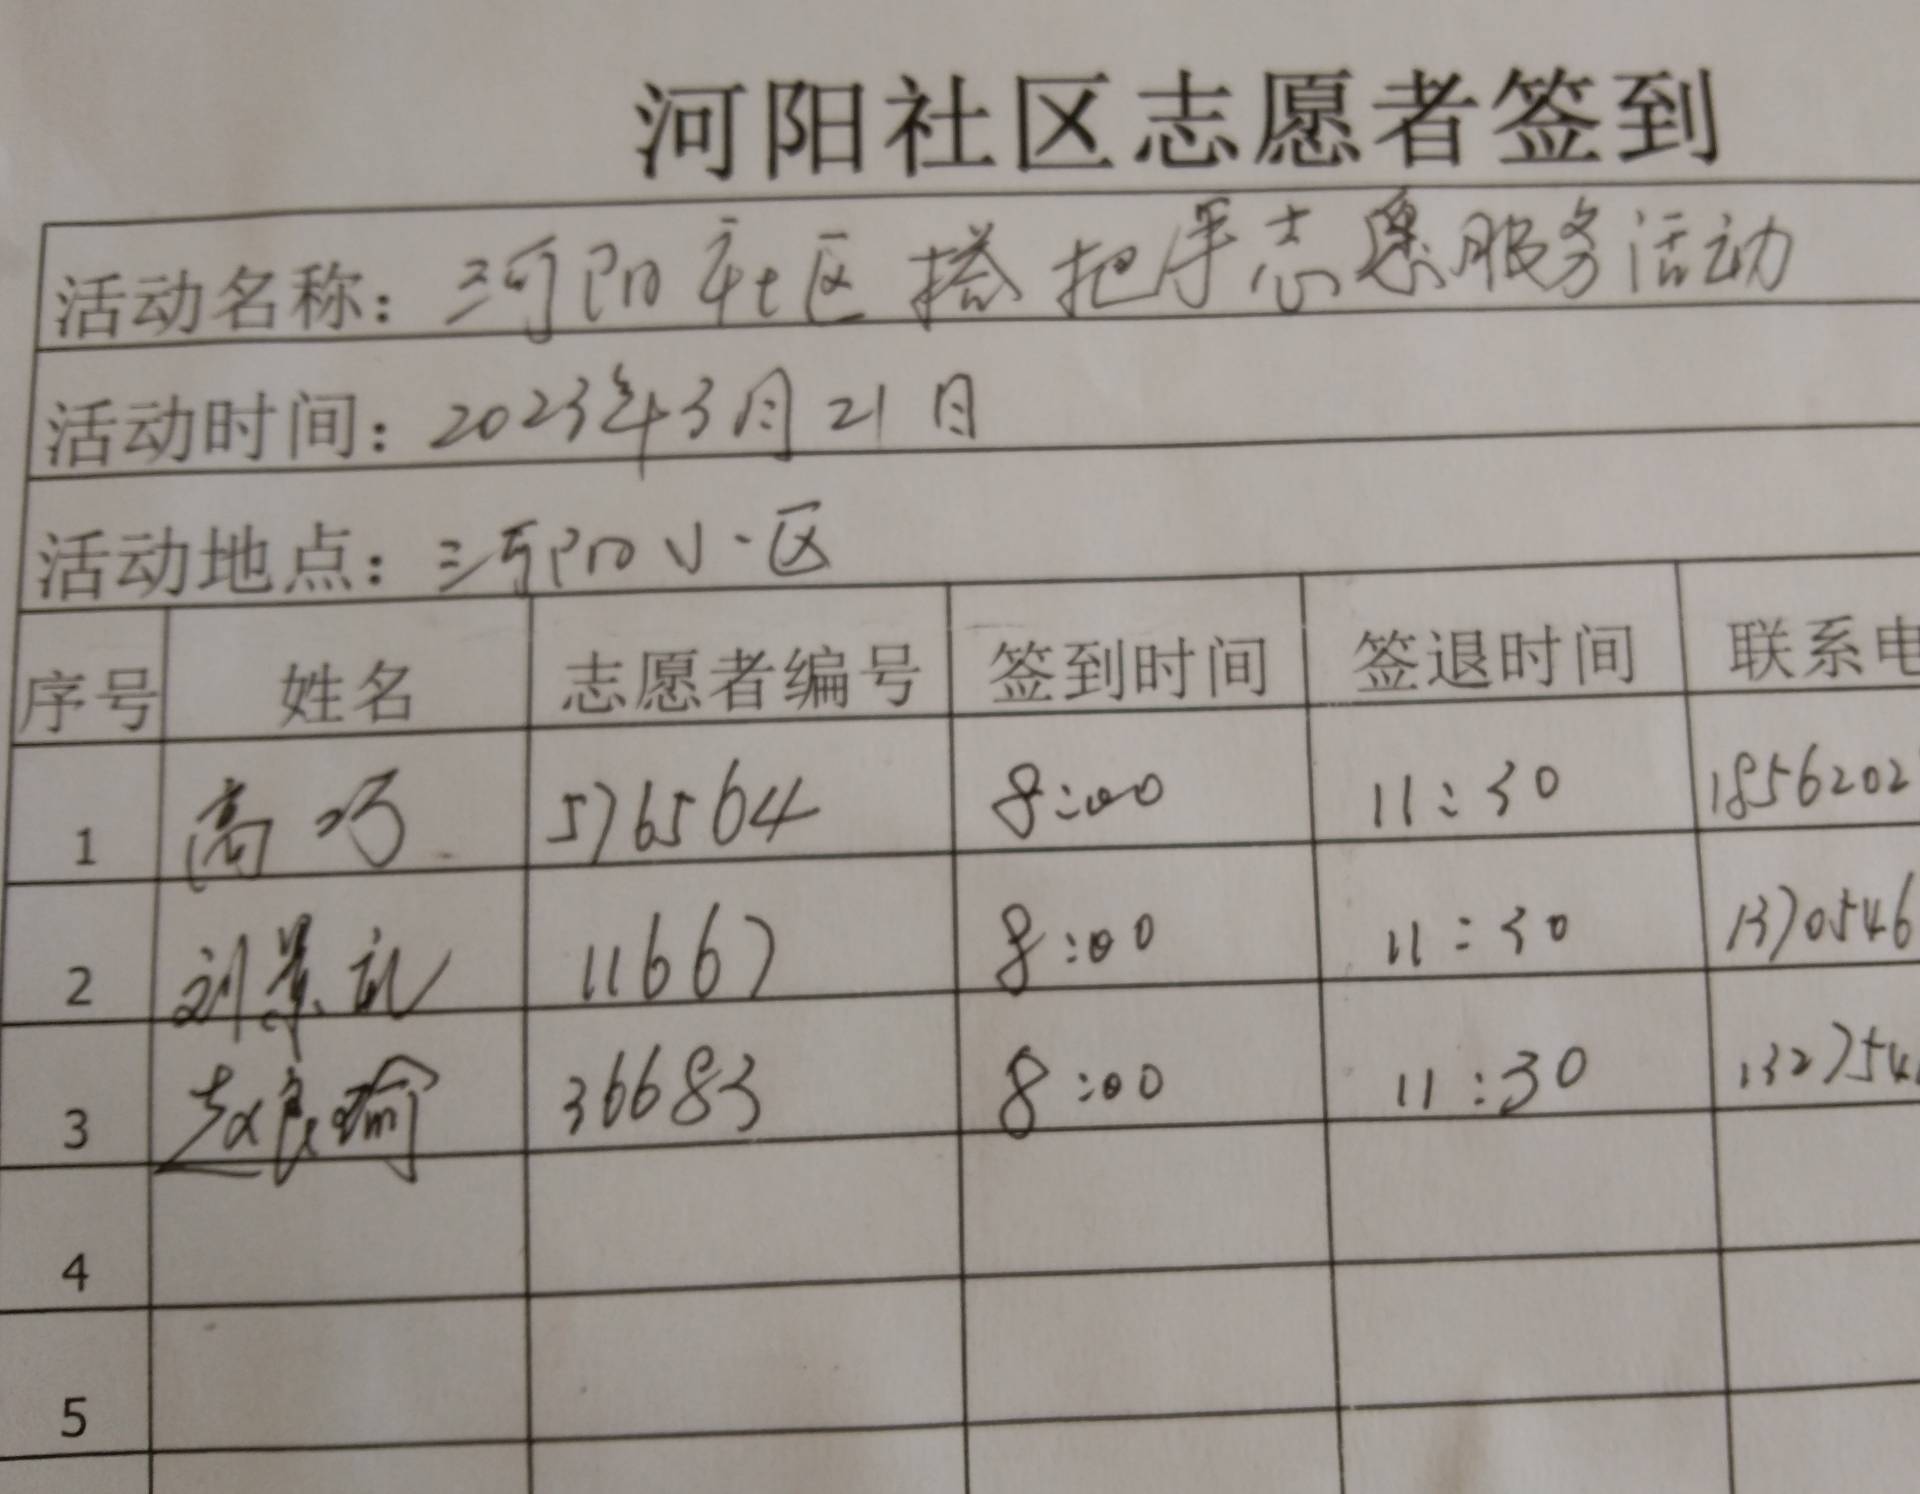 河阳社区志愿者签到
活动名称：河阳社区搭把手志愿服务活动
活动时间：2023年3月21日
活动地点：河阳小区
序号 姓名 志愿者编号 签到时间 签退时间 联系电
1 高巧 576564 8:00 11:30 1856202
2 刘景礼 11667 8:00 11:30 1370546
3 赵良瑜 36683 8:00 11:30 132754
4
5